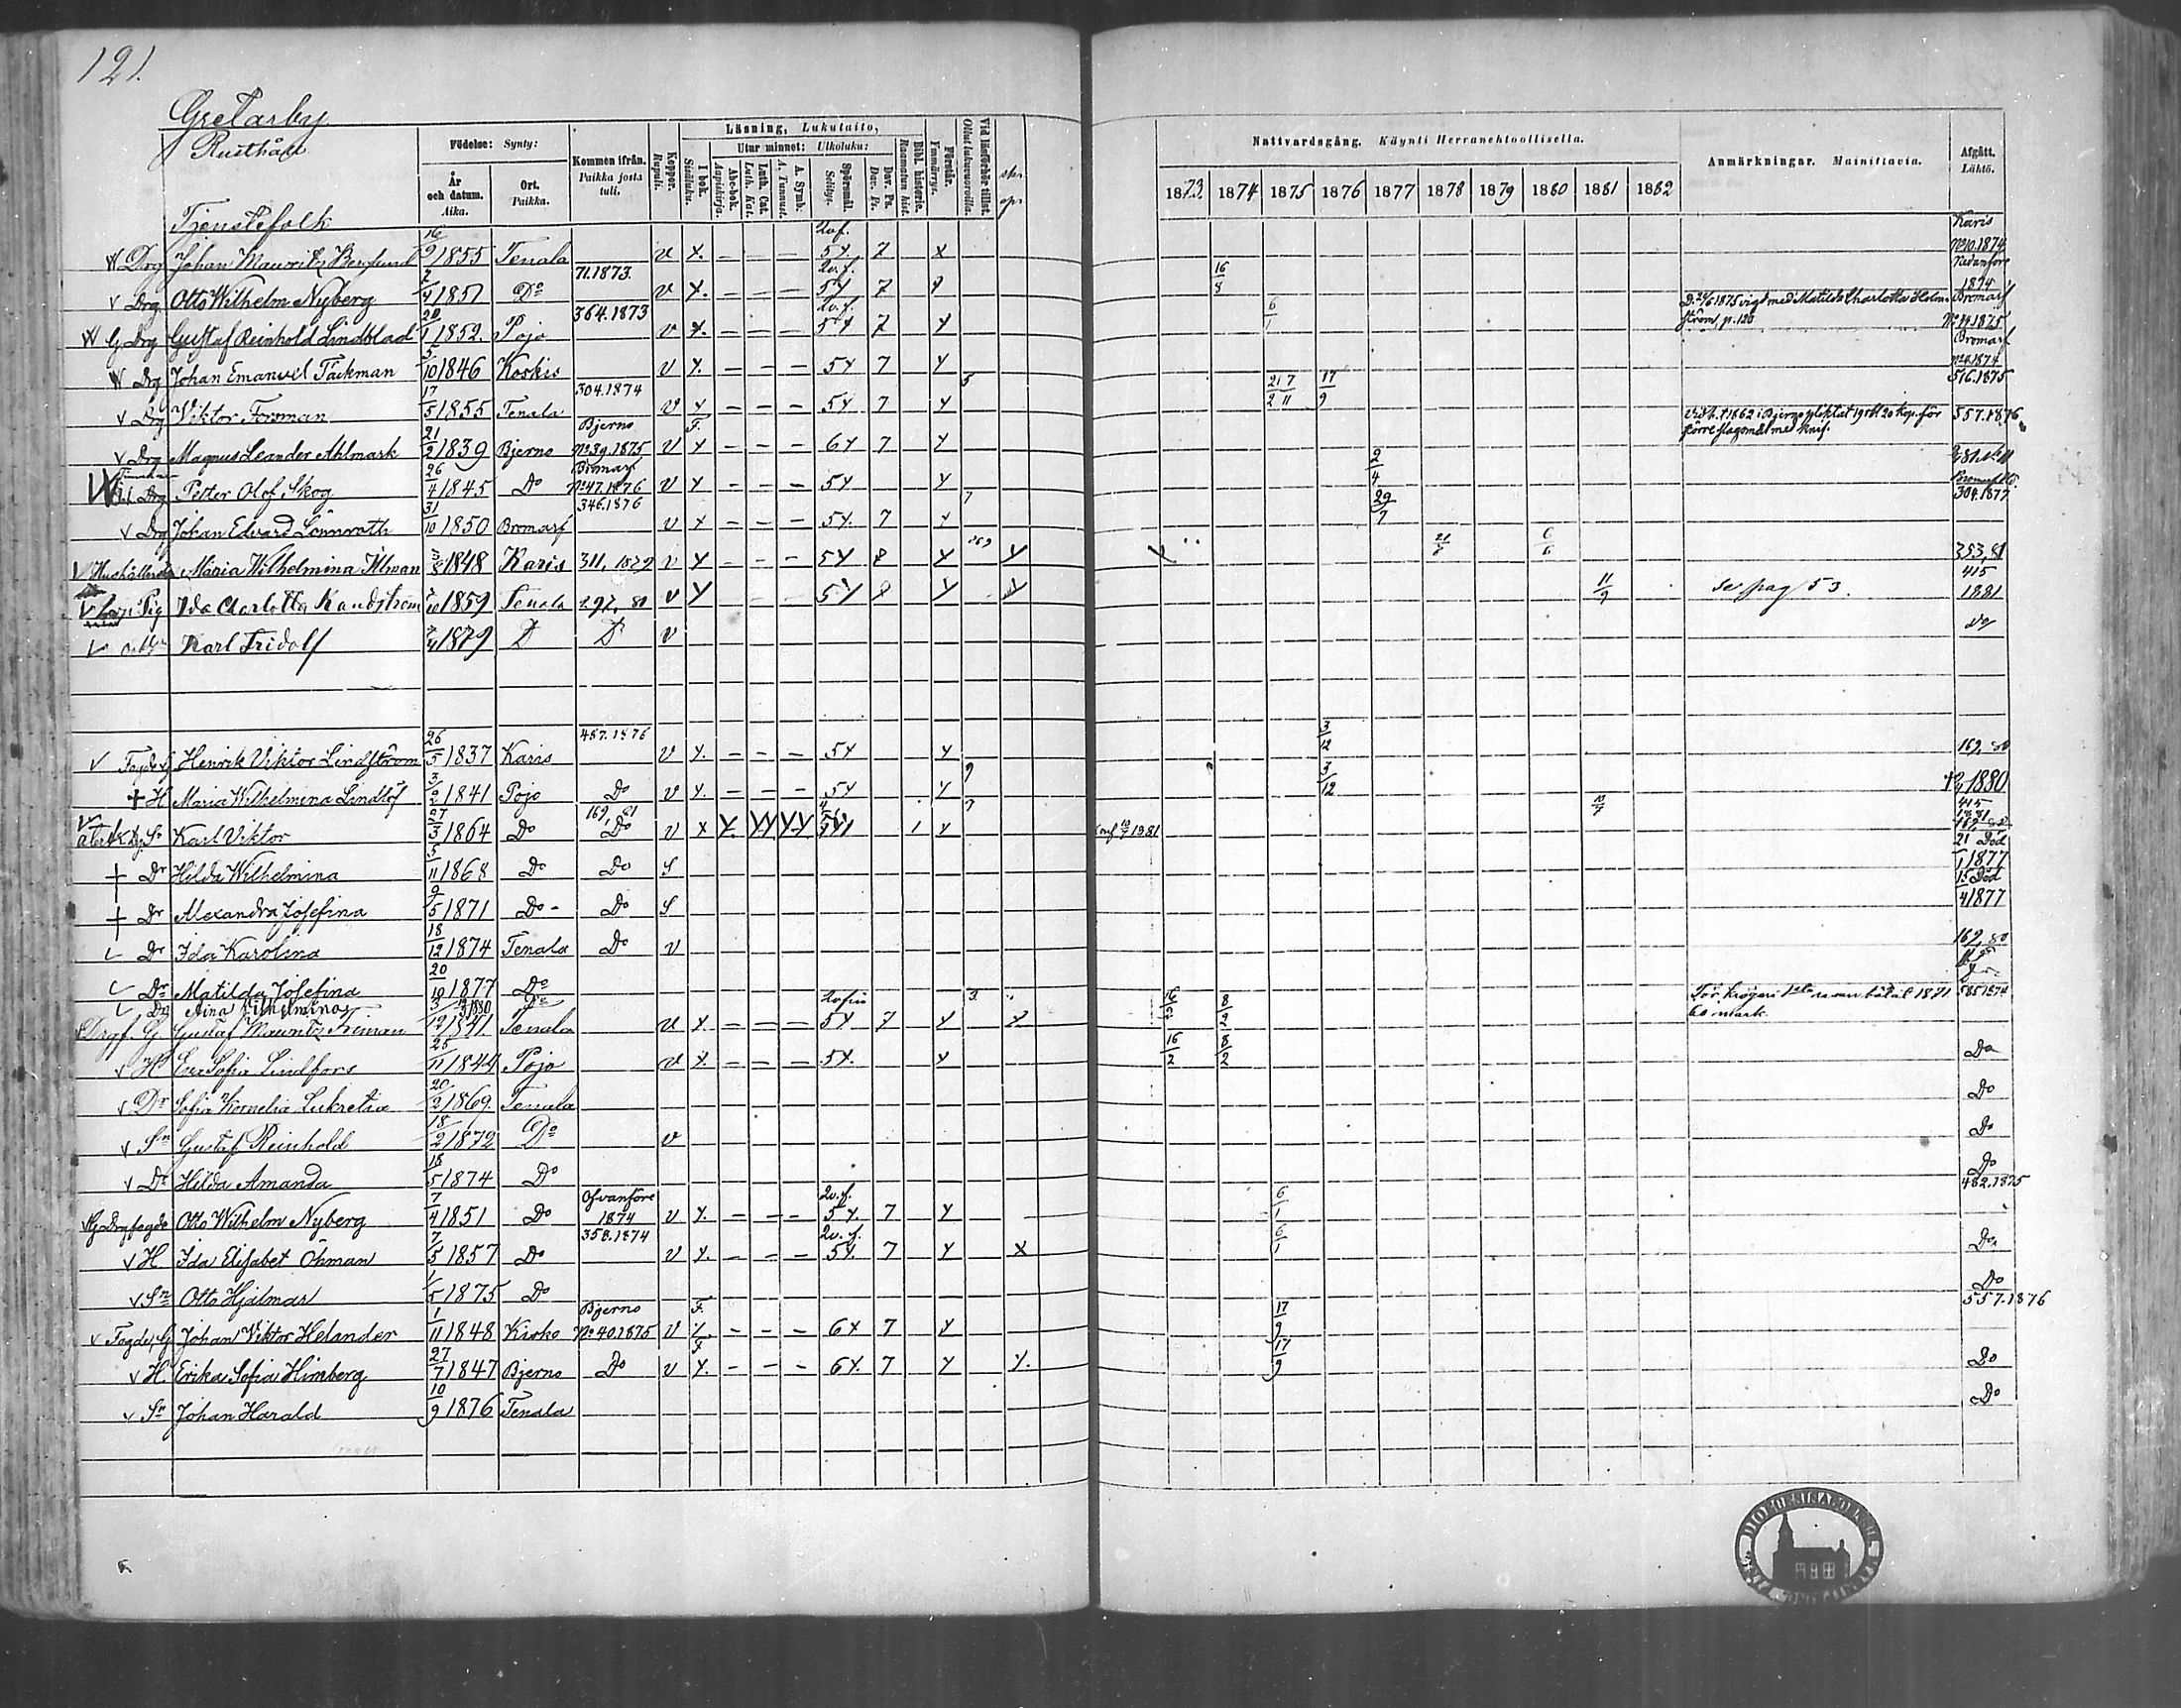 121.
Gretarby
Rusthåll
Tjenstefolk
Födelse: Synty:
År och datum. Aika.
Ort. Paikka.
Kommen ifrån. Paikka josta tuli.
Koppor. Rupuli.
Läsning, Lukutaito,
I bok. Sisäluku.
Utur minnet: Ulkoluku:
Abc-bok. Aapiskirja.
Luth. Cat. Luth. Kat.
A. Symb. A. Tunnust.
Spörsmål. Selitys.
Dav. Ps. Dav. Ps.
Bibl. historie. Raamatun hist.
Förstår. Ymmärrys.
Vid läsförhör tillst. Ollut lukuvuoroilla.
Nattvardsgång. Käynti Herranehtoollisella.
1873 1874 1875 1876 1877 1878 1879 1880 1881 1882
Anmärkningar. Mainittavia.
Afgått. Lähtö.
Drg Johan Mauritz Berglund 16/9 1855 Tenala v x. – – – 2v.f. 5x 7 x Karis No 10.1874
v Drg Otto Wilhelm Nyberg 7/4 1851 Do 71.1873. v x. – – – 2v.f. 5x 7 x 16/8 Nedanföre 1874
G Drg Gustaf Reinhold Lindblad 20/1 1852. Pojo 364.1873 v x. – – – 2v.f. 5x 7 x 6/1 D. 24/6 1875 vigd med Matilda Charlotta Holmström, p. 120 Bromarf No 14.1875
Drg Johan Emanuel Täckman 3/10 1846 Koskis v x. – – – 5x 7 x Bromarf No 4.1874
v Drg Viktor Forsman 17/5 1855 Tenala 304.1874 v x – – – 5x 7 x 5 21/2 7/11 17/9 516.1875
v Drg Magnus Leander Ahlmark 21/2 1839 Bjerno Bjerno No 39.1875 v F. x – – – 6x 7 x Vid h.t 1862 i Bjerno pliktat 19 rbl 20 kop. för större slagsmål med knif. 557.1876
Drg Petter Olof Skog 26/4 1845 Do Bromarf No 47.1876 v x – – – 5x x 2/4
v Drg Johan Edvard Lönnroth 31/10 1850 Bromarf 346.1876 v x – – – 5x. 7 x 7 29/7 304.1877
v Hushållerska Maria Wilhelmina Ilman 1848 Karis 311, 1879 v x – – – 5x 8 x x 21/8 6/6 353, 81
Pig Ida Charlotta Randström 1859 Tenala 297, 80 v x – – 5x 8 x x 11/9 se pag 53. 415 1881
Karl Fridolf 1879 D D v do
v Fogde G Henrik Viktor Lindström 26/5 1837 Karis 457.1876 v x. – – – 5x x 3/12 169, 80
† H Maria Wilhelmina Lindlöf 3/2 1841 Pojo Do v x. – – – 5x x 9 3/12 1880
Sn Karl Viktor 27/3 1864 Do 169, 81 Do v x 1 x 7 Conf 10/7 1881 10/7 415 1881
† Dr Hilda Wilhelmina 5/11 1868 Do Do S 21 Död 1 1877
† Dr Alexandra Josefina 9/5 1871 Do - Do S 15 Död 4 1877
Dr Ida Karolina 18/12 1874 Tenala Do v 169, 80
Dr Matilda Josefina 20/10 1877 Do
Dr Aina Vilhelmina 1880 Do
Drgf. G. Gustaf Mauritz Friman 3/12 1841 Tenala v x – – – 5x 7 x 3. x 16/2 8/2 För krögeri 1sta resan bötat 1871 60 mark. 585 1874
v H Eva Sofia Lindfors 25/11 1844 Pojo v x. – – – 5x. x 16/2 8/2 Do
v Dr Sofia Kornelia Lukretia 20/2 1869. Tenala Do
v Sn Gustaf Reinhold 18/2 1872 Do v Do
v Dr Hilda Amanda 18/5 1874 Do Do
G Drgfogde Otto Wilhelm Nyberg 7/4 1851 Do Ofvanföre 1874 v x. – – – 2v.f. 5x. 7 x 6/1 482.1875
v H Ida Elisabet Öhman 7/5 1857 Do 358.1874 v x. – – – 2v.f. 5x. 7 x x 6/1 Do
v Sn Otto Hjalmar 1/5 1875 Do Do
v Fogde, G Johan Viktor Helander 1/11 1848 Kisko Bjerno No 40.1875 v F. x. – – – 6x 7 x 17/9 557.1876
v H Erika Sofia Himberg 27/7 1847 Bjerno Do v x. – – – 6x. 7 x x. 17/9 Do
v Sn Johan Harald 10/9 1876 Tenala Do